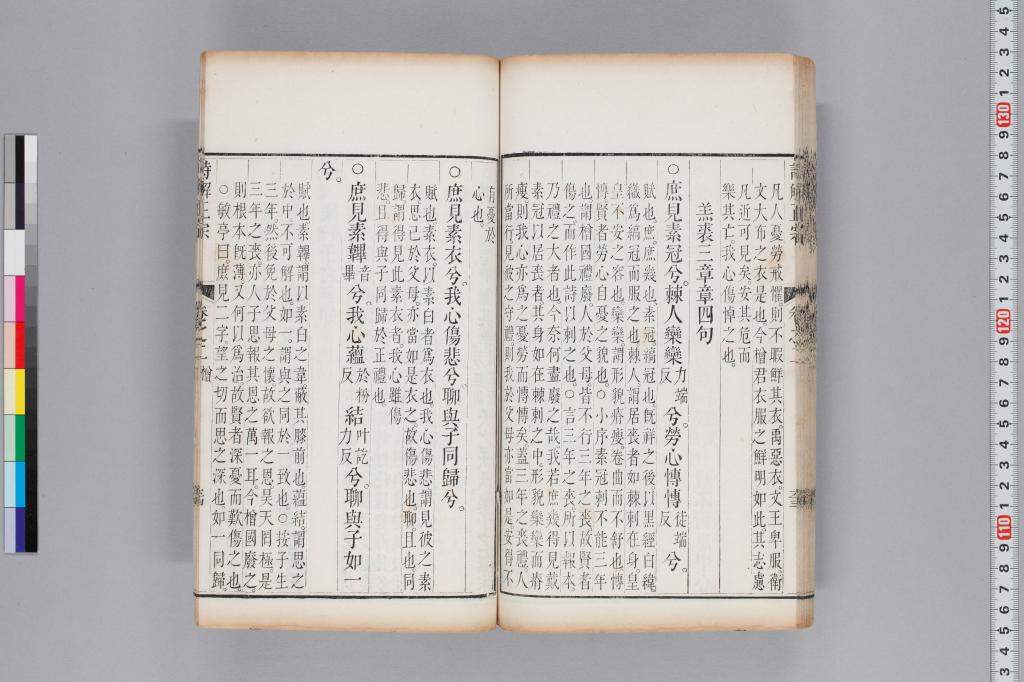 凡人憂勞戒懼。則不暇鮮其衣。禹惡衣。文王卑服。衛
文大布之衣是也。今檜君衣服之鮮明如此。其志慮
凡近可見矣。安其危而
樂其亡。我心傷悼之也。
羔裘三章章四句
○庶見素冠兮。棘人欒欒力端反兮。勞心慱慱徒端反兮。
賦也。庶。庶幾也。素冠。縞冠也。旣祥之後以黑經白緯
織爲縞冠而服之也。棘人。謂居喪者如棘刺在身。皇
皇不安之容也。欒欒。謂形貌瘠瘦。卷曲而不舒也。慱
慱。賢者勞心自憂之貌也。○小序素冠刺不能三年
也。謂檜國禮廢。人於父母皆不行三年之喪。故賢者
傷之。而作此詩以刺之也。○言三年之喪。所以報本。
乃禮之大者也。今奈何盡廢之哉。我若庶幾得見戴
素冠以居喪者。其身如在棘刺之中。形貌欒欒而瘠
瘦。則我心亦爲之憂勞而慱慱矣。蓋三年之喪。禮人
所當行。見彼之守禮。則我於父母亦當如是。安得不
有憂於
心也。
○庶見素衣兮。我心傷悲兮。聊與子同歸兮。
賦也。素衣。以素白者爲衣也。我心傷悲。謂見彼之素
衣。思己於父母。亦當如是衣之。故傷悲也。聊。且也。同
歸。謂得見此素衣者。我心雖傷
悲。且得與子同歸於正禮也。
○庶見素韠音畢兮。我心蘊於粉反結叶訖力反兮。聊與子如一
兮。
賦也。素韠。謂以素白之韋蔽其膝前也。蘊結。謂思之
於中。不可解也。如一。謂與之同於一致也。○按子生
三年。然後免於父母之懷。故欲報之恩。昊天罔極。是
三年之喪。亦人子思報其恩之萬一耳。今檜國廢之。
則根本旣薄。又何以爲治。故賢者深憂而歎傷之也。
○敏亭曰。庶見二字。望之切而思之深也。如一同歸。
詩解正宗
卷之二 檜